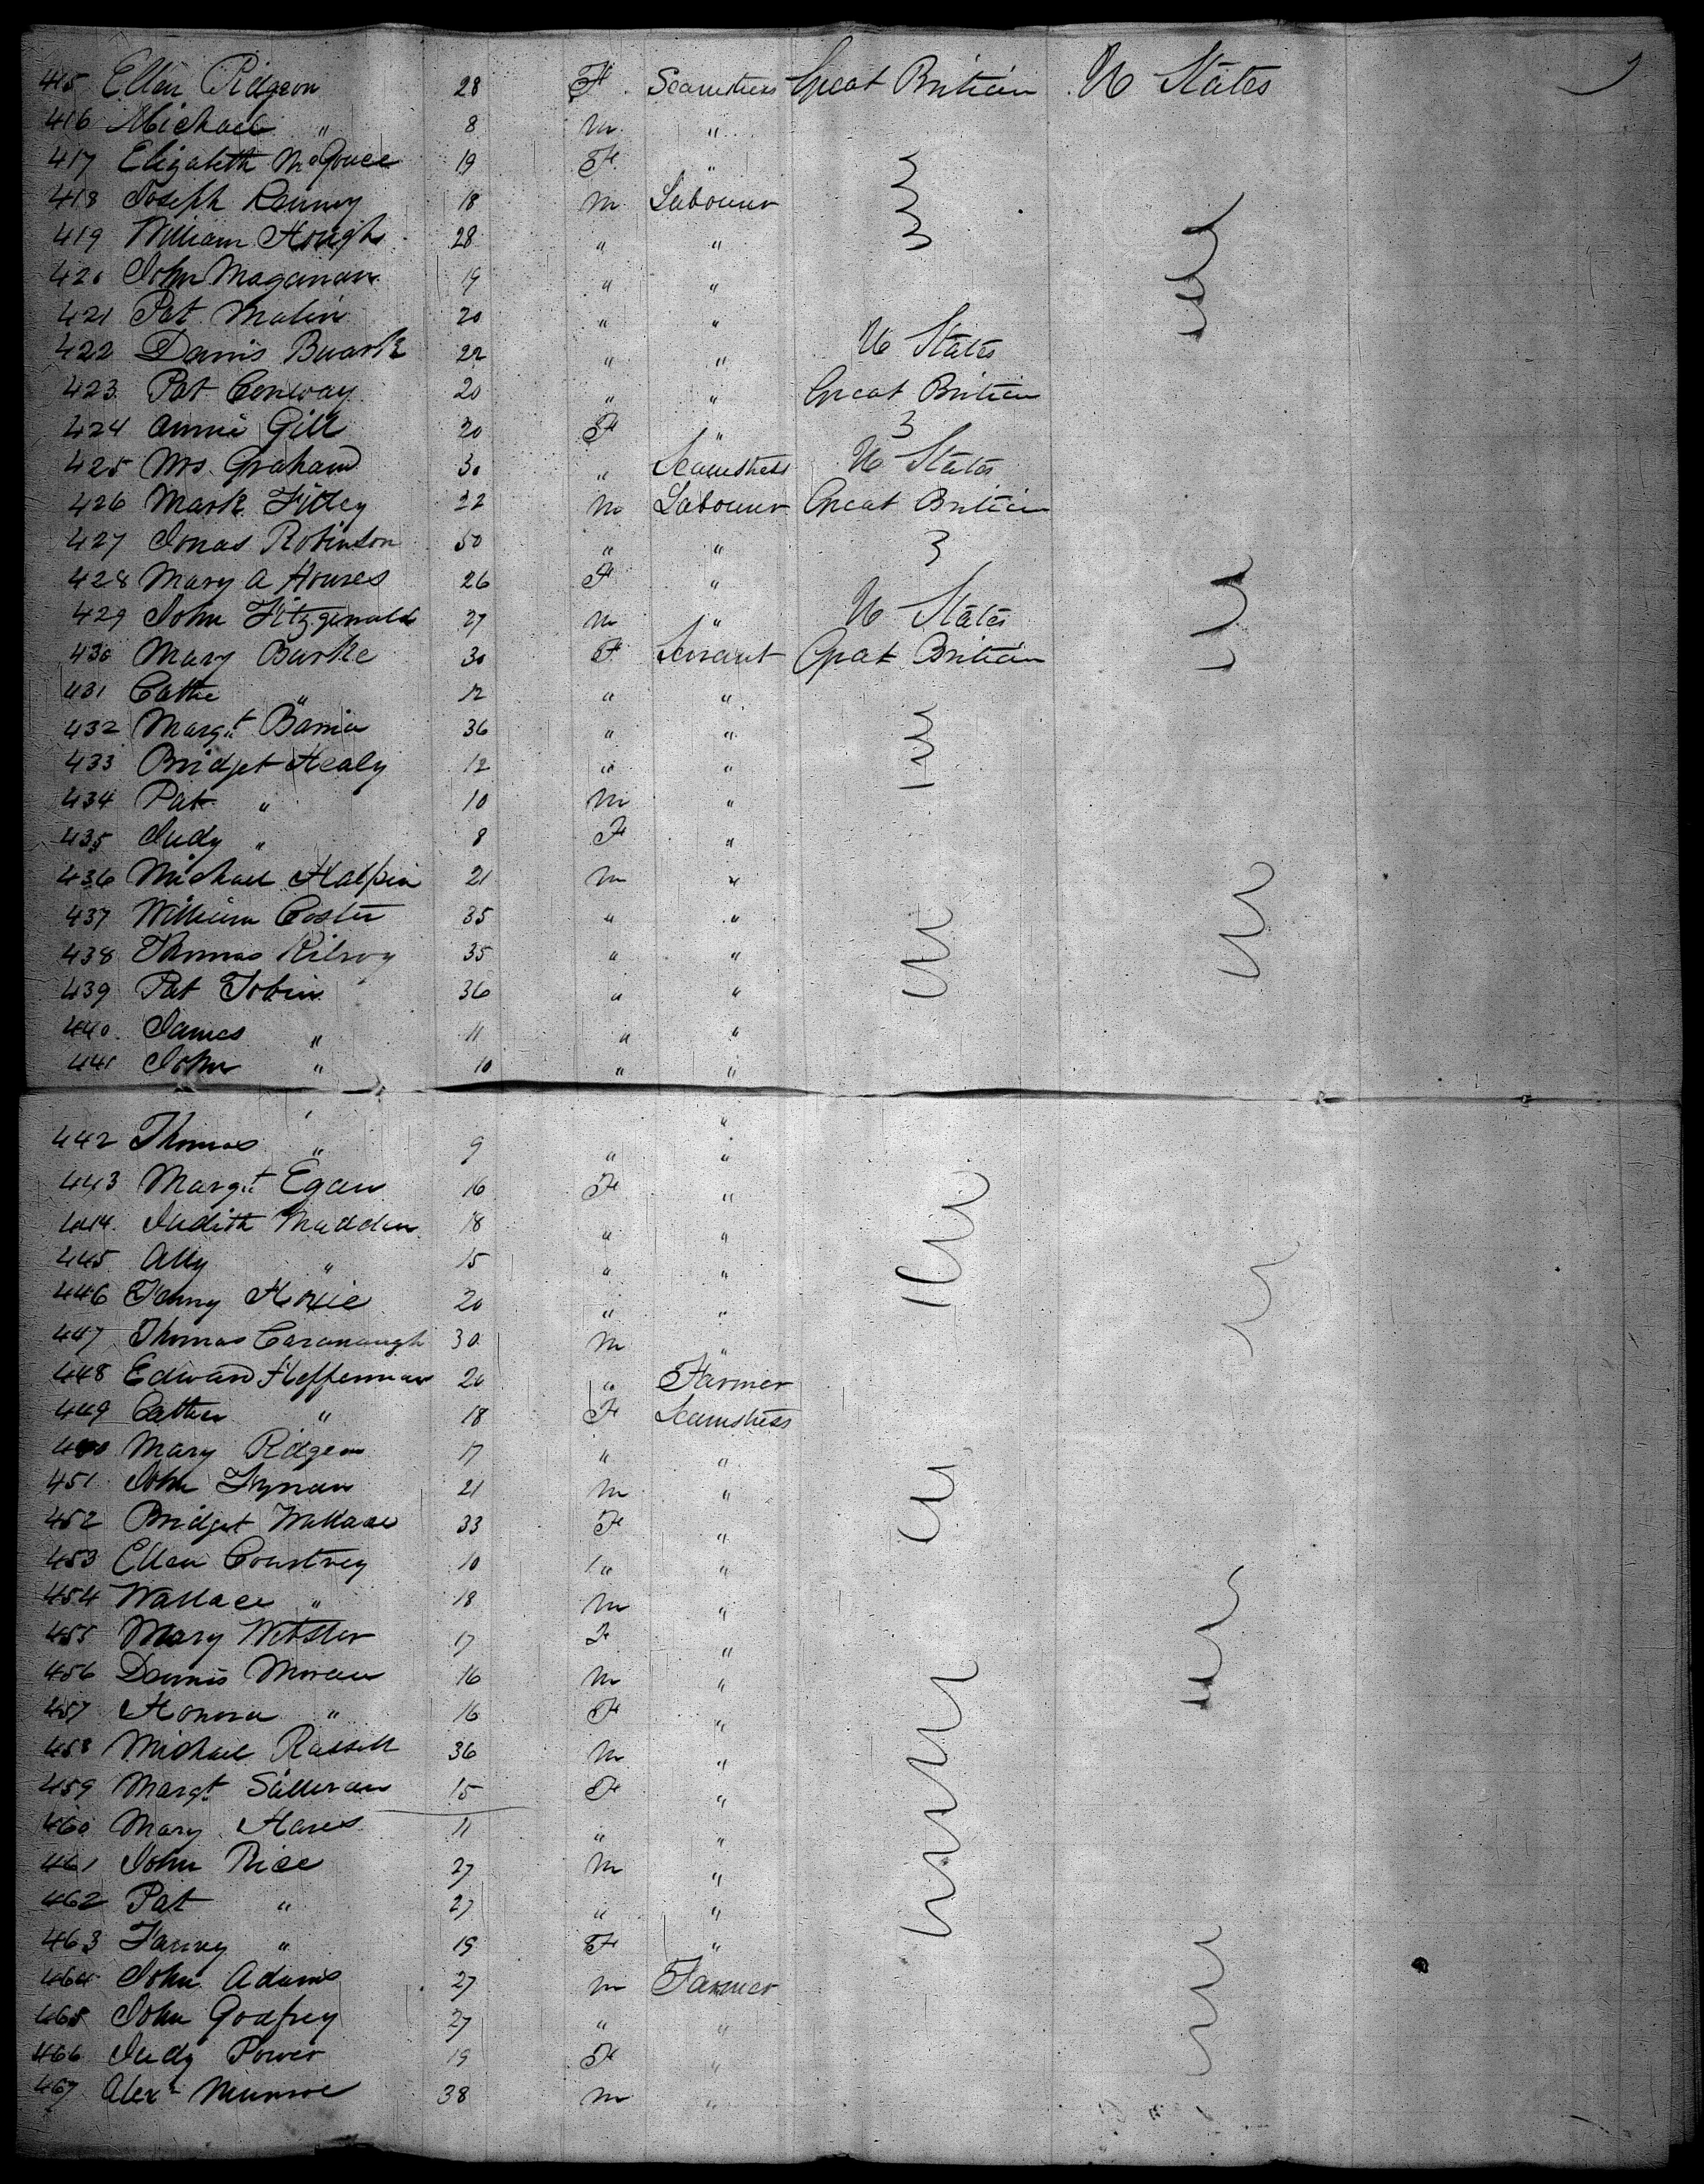 415 Ellen Ridgeon 28 F Seamstress Great Britian U States
416 Michael " 8 m "
417 Elizabeth 19 F "
418 Joseph 18 m Labourer
419 William Hough 28 " "
420 John Maganan 19 " "
421 Pat Malin 20 " "
422 Dennis 22 " " U States
423 Pat Conway 20 " " Great Britian
424 Annie Gill 20 F "
425 Mrs Graham 30 " Seamstress U States
426 Mark 22 m Labourer Great Britian
427 Jonas Robinson 50 " "
428 Mary A 26 F "
429 John Fitzgerald 27 m " U States
430 Mary Burke 30 F Servant Great Britian
431 Cathe " 12 " "
432 Margt 36 " "
433 Bridget Healy 12 " "
434 Pat " 10 m "
435 Judy " 8 F "
436 Michael Halpin 21 m "
437 William Coster 35 " "
438 Thomas Kilroy 35 " "
439 Pat Tobin 36 " "
440 James " 11 " "
441 John " 10 " "
442 Thomas " 9 " "
443 Margt Egan 16 F "
444 Judith Madden 18 " "
445 Ally " 15 " "
446 20 " "
447 Thomas Cavanaugh 30 m "
448 Edward Heffernan 20 " Farmer
449 Cather " 18 F Seamstress
450 Mary Ridgeon 17 " "
451 John Fynan 21 m "
452 Bridget Wallace 33 F "
453 Ellen Courtney 10 " "
454 Wallace " 18 m "
455 Mary Webster 17 F "
456 Dennis Moran 16 m "
457 Honora " 16 F "
458 Michael Russell 36 m "
459 Margt Sullivan 15 F "
460 Mary 11 " "
461 John Rice 27 m "
462 Pat " 27 " "
463 Fanny " 19 F "
464 John Adams 27 m Farmer
465 John Godfrey 27 " "
466 Judy Power 19 F "
467 Alexr Munroe 38 m "